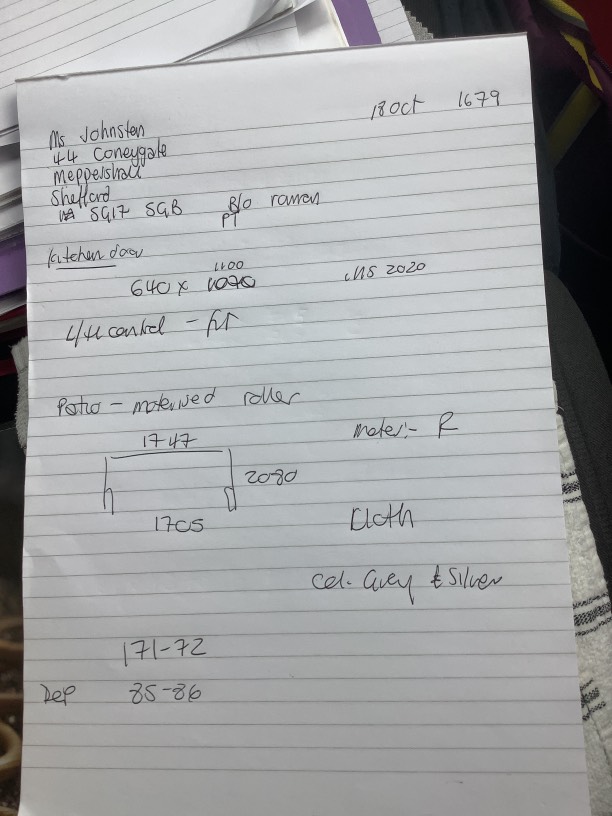 18 Oct 1679
Ms Johnston
44 Coneygate
Meppershall
Shefford
SG17 5GB B/O roman
PT
Kitchen door
1100
640 x ins 2020
L/H control - fit
Patio - motorised roller
1747 motor:- R
2080
1705 Cloth
Col. Grey & Silver
171-72
Dep 85-86